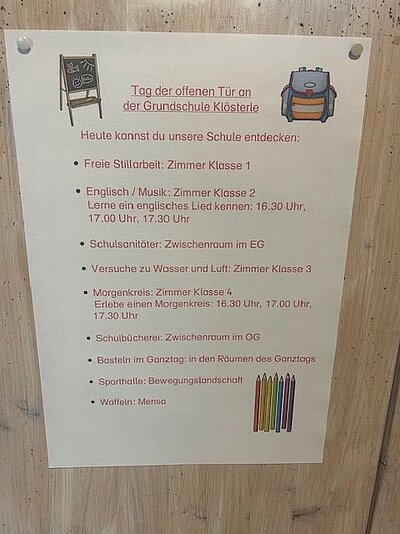 Tag der offenen Tür an
der Grundschule Klösterle
Heute kannst du unsere Schule entdecken:
• Freie Stillarbeit: Zimmer Klasse 1
• Englisch / Musik: Zimmer Klasse 2
Lerne ein englisches Lied kennen: 16.30 Uhr,
17.00 Uhr, 17.30 Uhr
• Schulsanitäter: Zwischenraum im EG
• Versuche zu Wasser und Luft: Zimmer Klasse 3
• Morgenkreis: Zimmer Klasse 4
Erlebe einen Morgenkreis: 16.30 Uhr, 17.00 Uhr,
17.30 Uhr
• Schulbücherei: Zwischenraum im OG
• Basteln im Ganztag: in den Räumen des Ganztags
• Sporthalle: Bewegungslandschaft
• Waffeln: Mensa